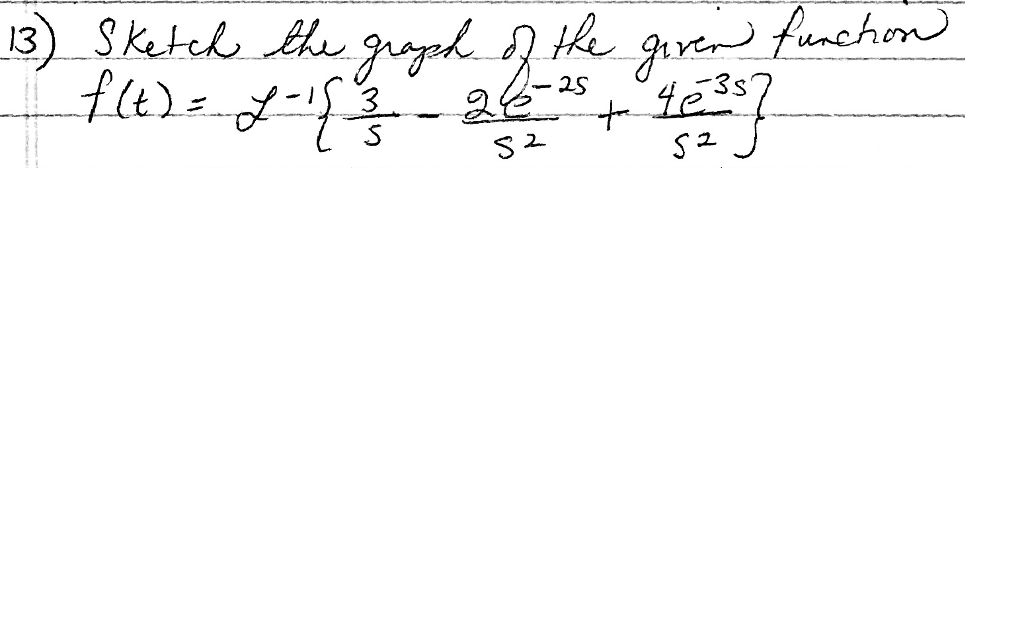 13) Sketch the graph of the given function
f(t) = ℒ⁻¹{ 3/s - 2e^{-2s}/s² + 4e^{-3s}/s² }